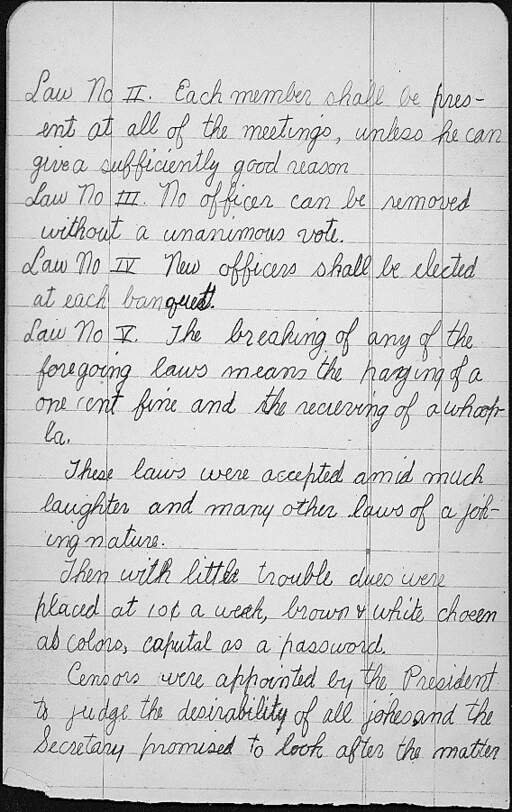 Law No II. Each member shall be pres-
ent at all of the meetings, unless he can
give a sufficiently good reason
Law No III. No officer can be removed
without a unanimous vote.
Law No IV New officers shall be elected
at each banquet.
Law No V. The breaking of any of the
foregoing laws means the paying of a
one cent fine and the recieving of a whoop-
la.
These laws were accepted amid much
laughter and many other laws of a jok-
ing nature.
Then with little trouble dues were
placed at 10¢ a week, brown & white chosen
as colors, capital as a password.
Censors were appointed by the President
to judge the desirability of all jokes and the
Secretary promised to look after the matter